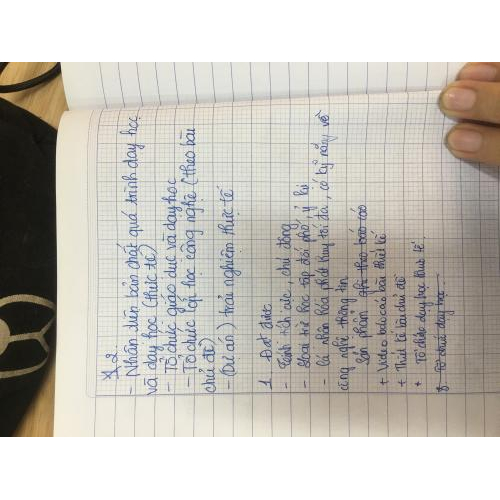 2
- Nhận diện bản chất quá trình dạy học
và dạy học (thực tế)
- Tổ chức giáo dục và dạy học
- Tổ chức lớp học công nghệ (theo bài
chủ đề)
- (Dự án) trải nghiệm thực tế
1. Đạt được
- Tính tích cực, chủ động
- học tập đối phó, ỷ lại
- cá nhân hóa phát huy tối đa, có kỹ năng về
công nghệ thông tin
sản phẩm ghi theo báo cáo
+ Video bài các bài thiết kế
+ Thiết kế bài chủ đề
+ Tổ chức dạy học thực tế.
Tổ chức dạy học